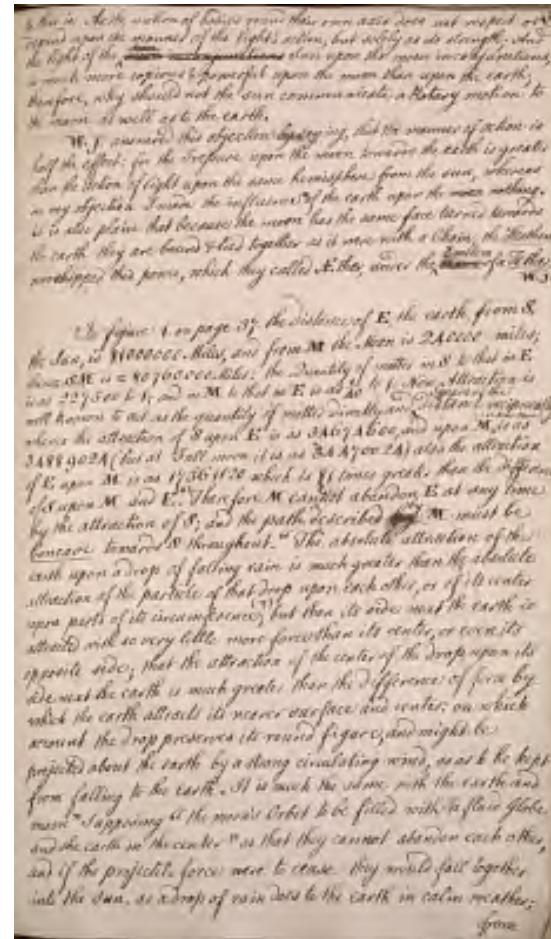 this is: As the motion of bodies round their own axis does not respect or
depend upon the manner of the light's action, but solely as its strength. And
the light of the does upon the moon incomparatively
is much more copious & powerful upon the moon than upon the earth,
therefore, why should not the sun communicate a Rotary motion to
the moon as well as to the earth.
W. J. answered this objection by saying, that the manner of action is
half the effect: for the Pressure upon the moon towards the earth is greater
than the action of light upon the same hemisphere from the sun, whereas
in my objection I mean the influence of the earth upon the moon nothing.
it is also plain that because the moon has the same face turned towards
the earth they are bound & tied together as it were with a Chain, the Heathens
worshipped this power, which they called Æther, under the Emblem of a Tether
W. J.
In figure 1. on page 37 the distance of E the earth, from S,
the Sun, is 81000000 Miles, and from M the Moon is 240000 miles;
hence SM is = 80760000 Miles: the Quantity of matter in S to that in E
is as 227500 to 1, and in M to that in E is as to 1. Now Attraction is
well known to act as the quantity of matter directly and distance reciprocally
whence the attraction of S upon E is as 34674600, and upon M, is as
34889024 (but at Full moon it is as 34470024) also the attraction
of E upon M is as 17361120 which is 81 times great. than the difference
of S upon M and E." Therefore M cannot abandon E at any time
by the attraction of S, and the path described M must be
Concave towards S throughout." The absolute attraction of the
earth upon a drop of falling rain is much greater than the absolute
attraction of the particles of that drop upon each other, or of its center
upon parts of its circumference; but then its side next the earth is
attracted with so very little more force than its center, or even its
opposite side; that the attraction of the center of the drop upon its
side next the earth is much greater than the difference of force by
which the earth attracts its nearer surface and center: on which
account the drop preserves its round figure, and might be
projected about the earth by a strong circulating wind, so as to be kept
from falling to the Earth. It is much the same with the earth and
moon" Supposing the moon's Orbit to be filled with a fluid Globe
and the earth in the center" so that they cannot abandon each other,
and if the projectile force were to cease they would fall together
into the Sun, as a drop of rain does to the earth in calm weather;
from